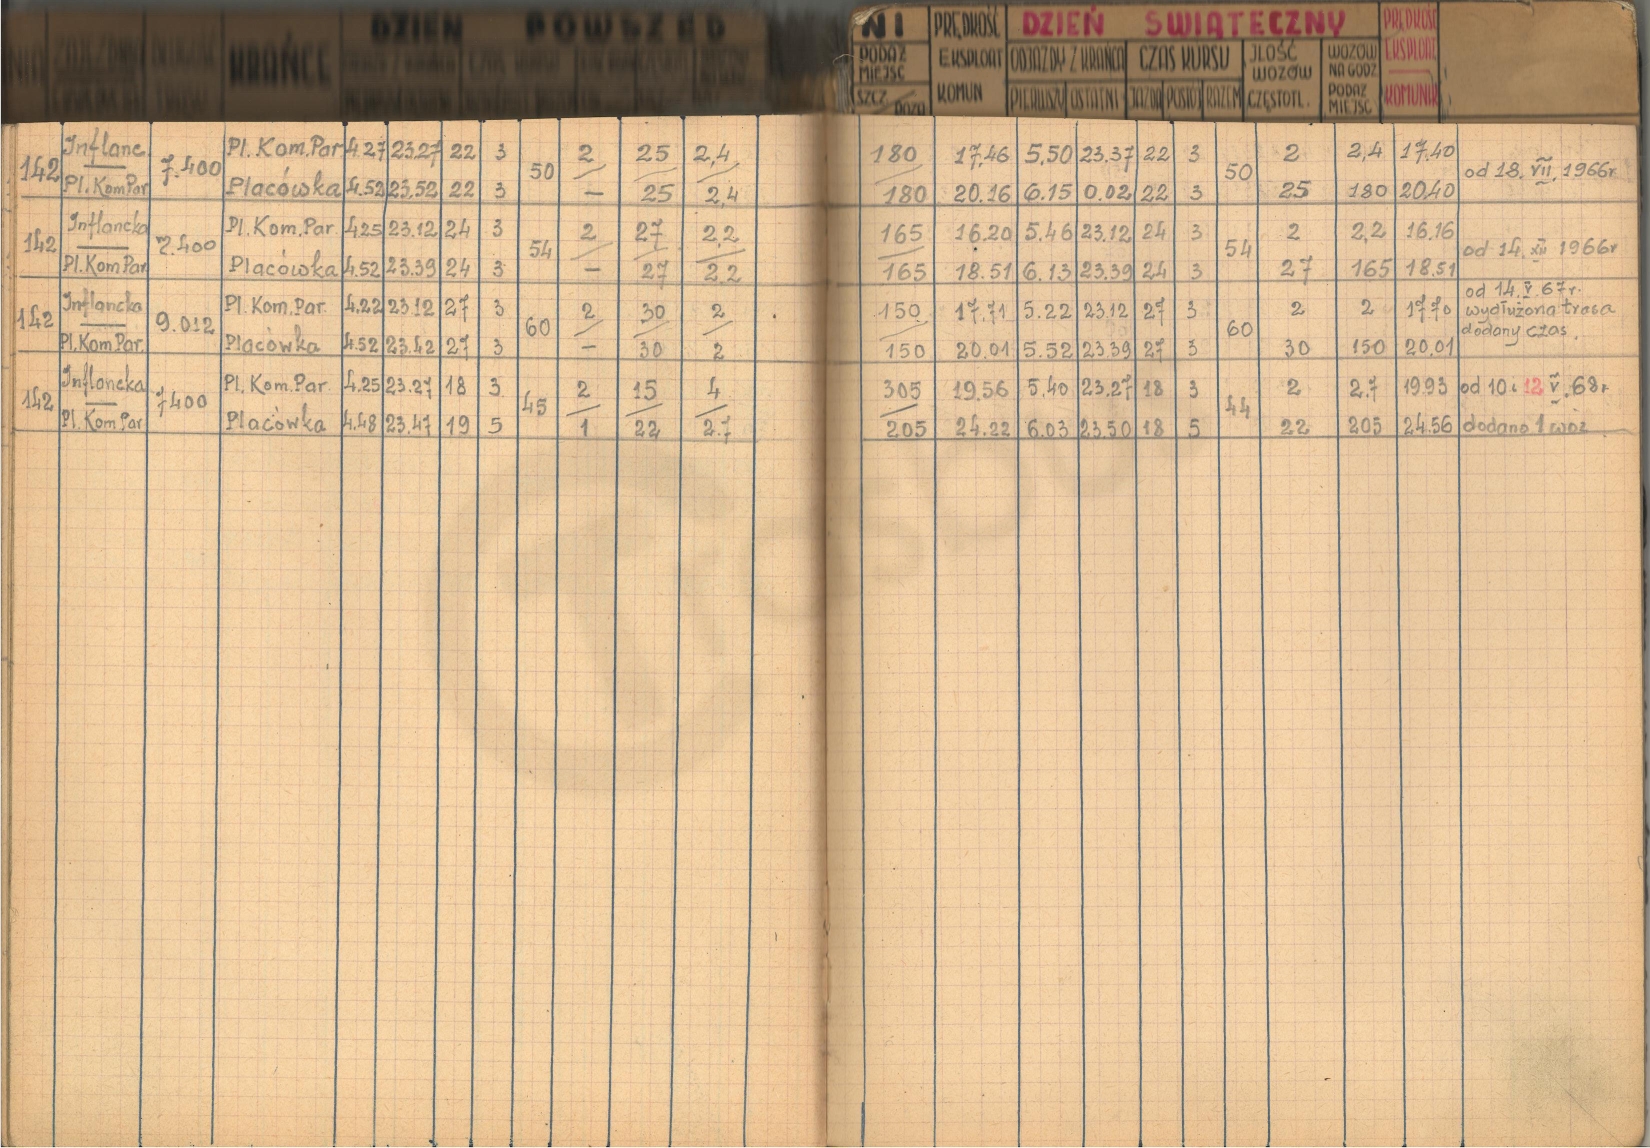 DZIEŃ POWSZED
KRAŃCE
NI PRĘDKOŚĆ DZIEŃ ŚWIĄTECZNY PRĘDKOŚĆ
PODAŻ MIEJSC EKSPLOAT ODJAZDY Z KRAŃCA CZAS KURSU JLOŚĆ WOZÓW WOZÓW NA GODZ EKSPLOAT
SZCZ/POZA KOMUN PIERWSZY OSTATNI JAZDA POSTÓJ RAZEM CZĘSTOTL. PODAŻ MIEJSC KOMUNIK
Inflanc Pl. Kom. Par 4.27 23.27 22 3 2 25 2,4 180 17.46 5.50 23.37 22 3 2 2,4 17.40
142 7.400 50 50 od 18. VII. 1966r
Pl. Kom Par Placówka 4.52 23.52 22 3 – 25 2,4 180 20.16 6.15 0.02 22 3 25 180 20.40
Inflancka Pl. Kom. Par. 4.25 23.12 24 3 2 27 2,2 165 16.20 5.46 23.12 24 3 2 2,2 16.16
142 7.400 54 54 od 14. XII 1966r
Pl. Kom Par Placówka 4.52 23.39 24 3 – 27 2.2 165 18.51 6.13 23.39 24 3 27 165 18.51
od 14. V. 67r.
Inflancka Pl. Kom. Par. 4.22 23.12 27 3 2 30 2 150 17.71 5.22 23.12 27 3 2 2 17.70 wydłużona trasa
142 9.012 60 60 dodany czas.
Pl. Kom Par. Placówka 4.52 23.42 27 3 – 30 2 150 20.01 5.52 23.39 27 3 30 150 20.01
Inflancka Pl. Kom. Par. 4.25 23.27 18 3 2 15 4 305 19.56 5.40 23.27 18 3 2 2.7 19.93 od 10 i 12 V. 68r
142 7.400 45 44
Pl. Kom Par Placówka 4.48 23.47 19 5 1 22 2.7 205 24.22 6.03 23.50 18 5 22 205 24.56 dodano 1 wóz